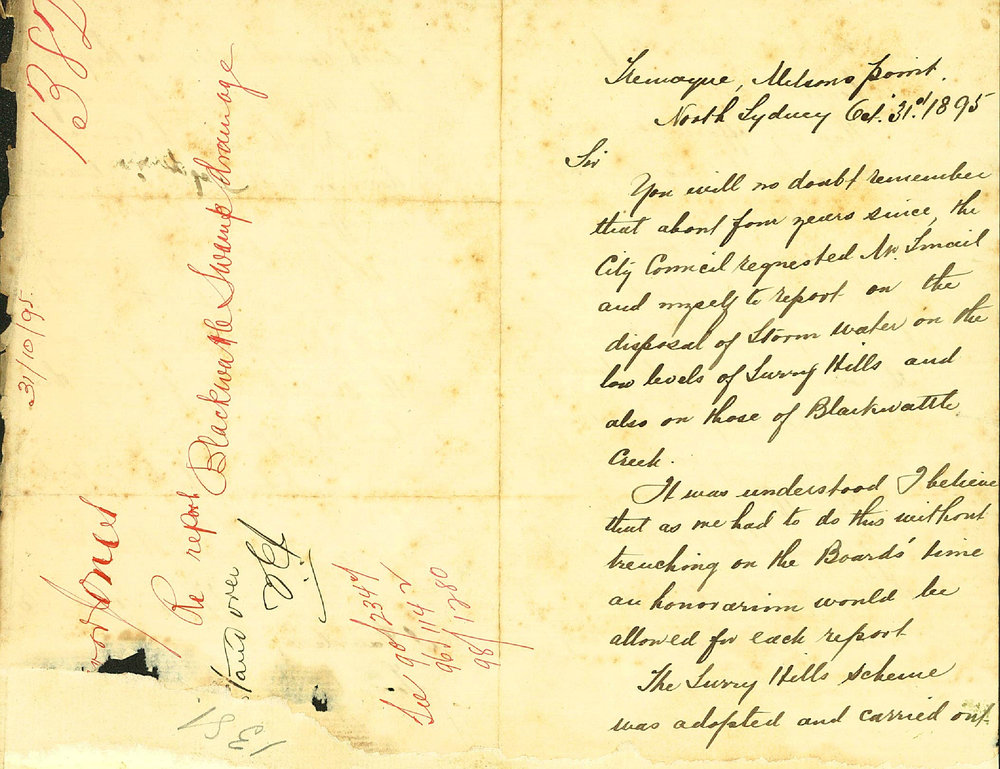 1382
31/10/95.
Jones
Re report Blackwattle Swamp drainage
stand over
See 90/2347
96/1142
98/1280
Tremayne, Milsons Point.
North Sydney Oct. 31.st 1895
Sir
You will no doubt remember
that about four years since, the
City Council requested Mr. Smail
and myself to report on the
disposal of Storm Water on the
low levels of Surry Hills and
also on those of Blackwattle
Creek.
It was understood I believe
that as we had to do this without
trenching on the Boards' time
an honorarium would be
allowed for each report
The Surry Hills Scheme
was adopted and carried out